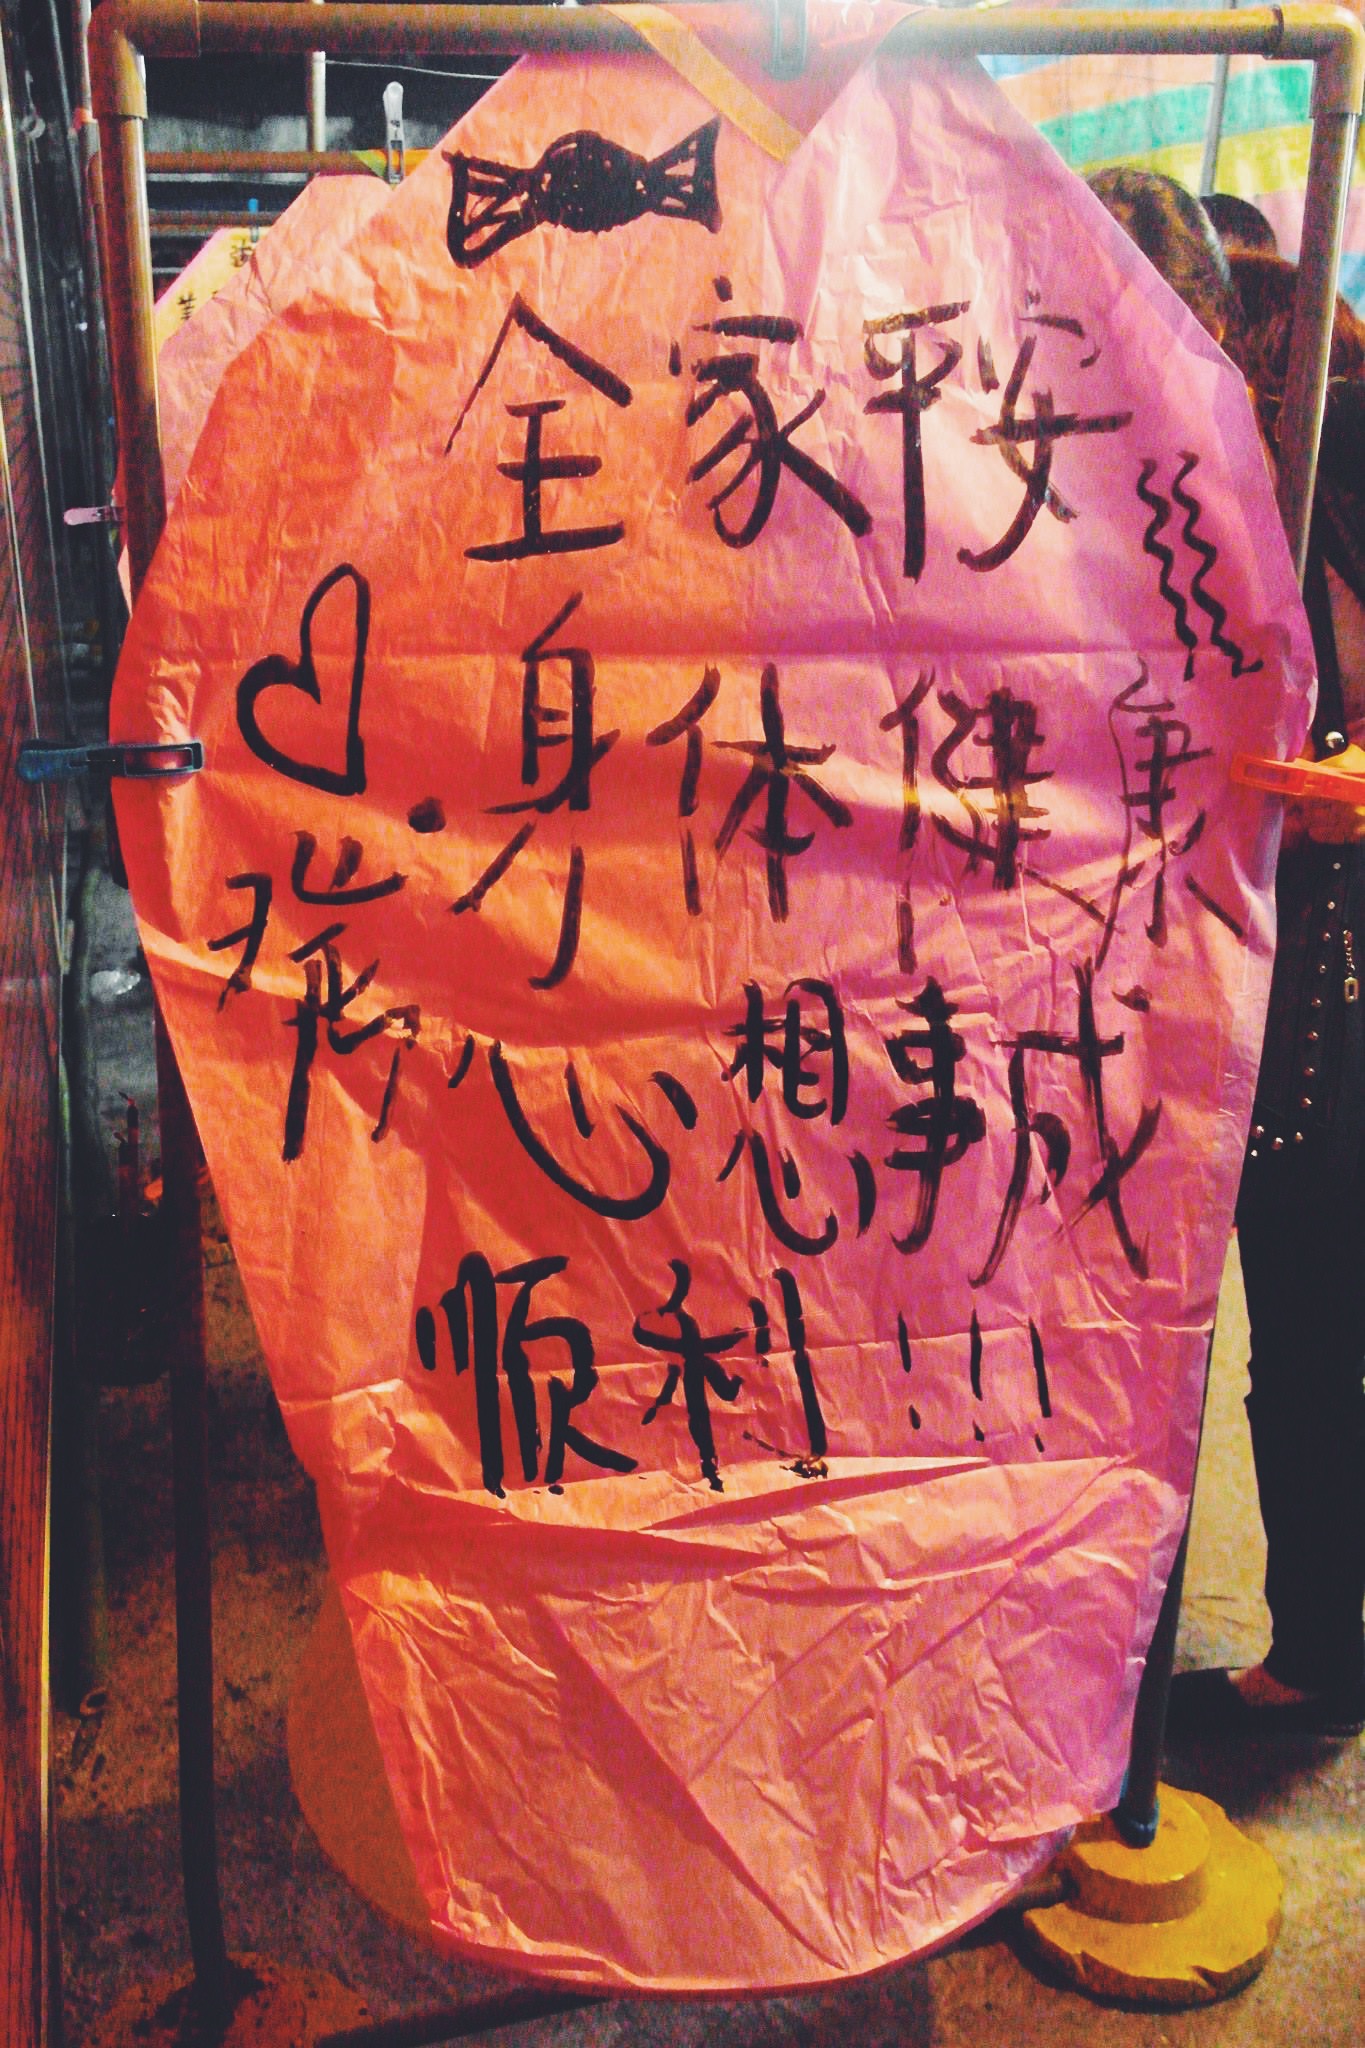 全家平安
身体健康
心想事成
順利!!!